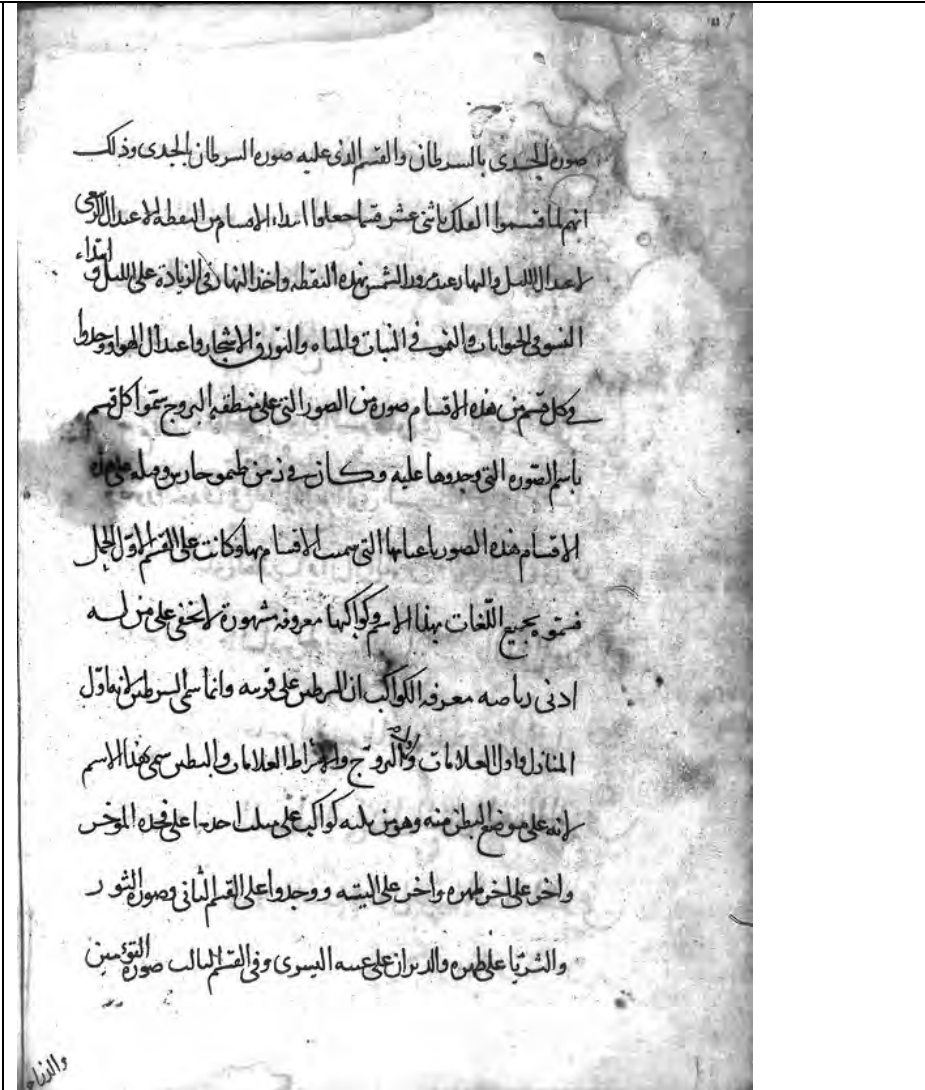 صوره الجدى بالسرطان والقسم الذى عليه صوره السرطان بالجدى وذلك
انهم لما قسموا الفلك باثنى عشر قسما جعلوا ابتداء الاقسام من النقطه الاعتدال الربيعى
لاعتدال الليل والنهار عند ورود الشمس بهذه النقطه واخذ النهار فى الزيادة على الليل و ابتداء
النشو فى الحيوانات والنمو فى النبات والمياه والتورق الاشجار واعتدال الهوا ووجدوا
فى كل قسم من هذه الاقسام صوره من الصور التى على منطقه البروج سموا كل قسم
باسم الصوره التى وجدوها عليه وكان فى زمن طيموخارس وقبله على هذه
الاقسام هذه الصور باعيانها التى سميت الاقسام بها وكانت على القسم الاول الحمل
فسموه بجميع اللغات بهذا الاسم وكواكبها معروفه مشهورة لا تخفى على من له
ادنى رياضه معرفه الكواكب ان الشرطين على قرنيه وانما سمى الشرطين لانه اول
المنازل واول العلامات والبروج والاشراط العلامات والبطين سمى بهذا الاسم
لانه على موضع البطن منه وهو من ثلثه كواكب على مثلث احدها على فخذه المؤخر
واخر على اخر ظهره واخر على اليته ووجدوا على القسم الثانى صوره الثور
والثريا على ظهره والدبران على عينه اليسرى وفى القسم الثالث صوره التوءمين